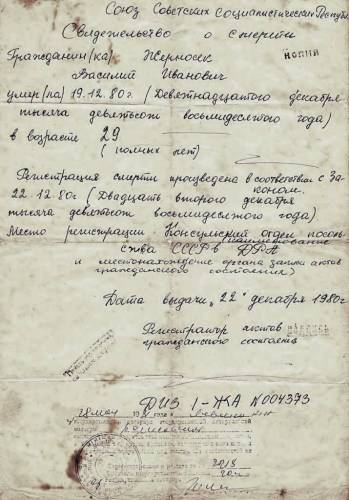 Союз Советских Социалистических Республ
Свидетельство о смерти
Гражданин(ка) Жерносек
КОПИЯ
Василий Иванович
умер(ла) 19.12.80г. (Девятнадцатого декабря
тысяча девятьсот восьмидесятого года)
в возрасте 29
(полных лет)
Регистрация смерти произведена в соответствии с За-
коном.
22.12.80г (Двадцать второго декабря
тысяча девятьсот восьмидесятого года)
Место регистрации Консульский отдел посоль-
(наименование
ства СССР в ДРА
и местонахождение органа записи актов
гражданского состояния)
Дата выдачи "22" декабря 1980г
Регистратор актов подпись
гражданского состояния
ДИЗ I-ЖА N004373
28 мая